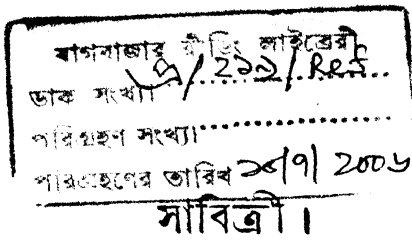 বাগবাজার রীডিং লাইব্রেরী
ডাক সংখ্যা
পরিগ্রহণ সংখ্যা
পরিগ্রহণের তারিখ ১৫/৭/ 2006
সাবিত্রী।